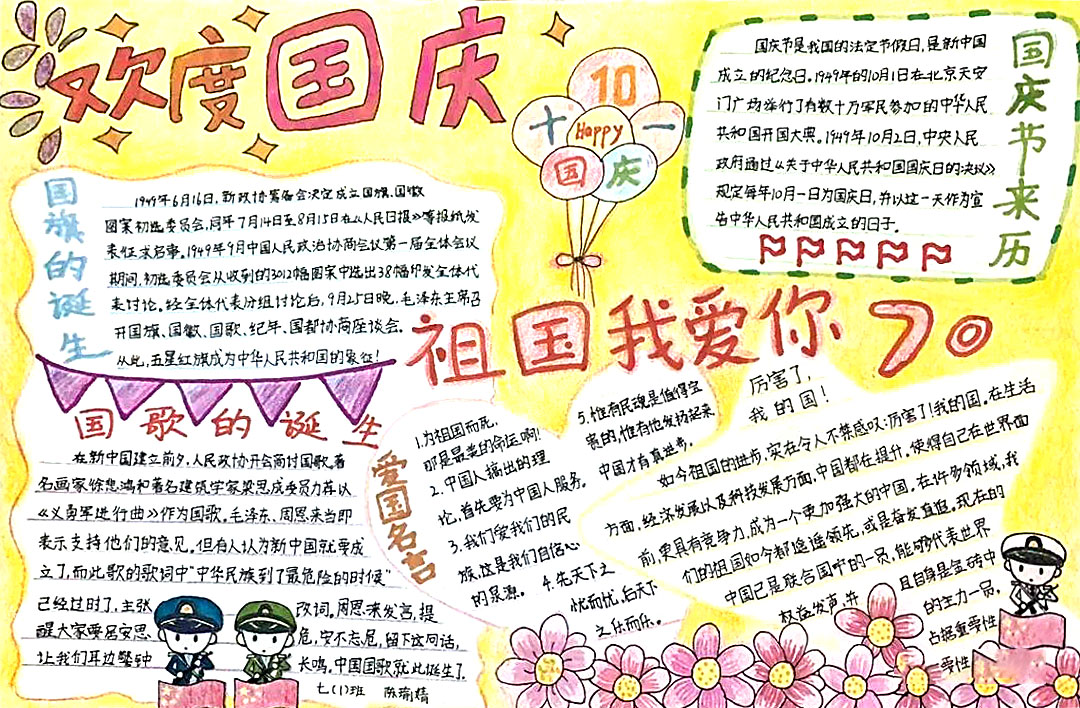 欢度国庆
10
十 Happy 一
国庆
国庆节来历
国庆节是我国的法定节假日,是新中国
成立的纪念日。1949年的10月1日在北京天安
门广场举行了有数十万军民参加的中华人民
共和国开国大典。1949年10月2日,中央人民
政府通过《关于中华人民共和国国庆日的决议》
规定每年10月一日为国庆日,并以这一天作为宣
告中华人民共和国成立的日子。
国旗的诞生
1949年6月16日,新政协筹备会决定成立国旗,国徽
图案初选委员会,同年7月14日至8月15日在《人民日报》等报纸发
表征求启事。1949年9月中国人民政治协商会议第一届全体会议
期间,初选委员会从收到的3012幅图案中选出38幅印发全体代
表讨论。经全体代表分组讨论后,9月25日晚,毛泽东主席召
开国旗、国徽、国歌、纪年、国都协商座谈会.
从此,五星红旗成为中华人民共和国的象征!
祖国我爱你70
国歌的诞生
在新中国建立前夕,人民政协开会商讨国歌。著
名画家徐悲鸿和著名建筑学家梁思成委员力荐以
《义勇军进行曲》作为国歌。毛泽东、周恩来当即
表示支持他们的意见。但有人认为新中国就要成
立了,而此歌的歌词中“中华民族到了最危险的时候”
已经过时了,主张改词。周恩来发言,提
醒大家要居安思危,安不忘危,留下这句话,
让我们耳边警钟长鸣。中国国歌就此诞生了.
七(1)班 陈瑜精
爱国名言
1.为祖国而死,
那是最美的命运啊!
2.中国人搞出的理
论,首先要为中国人服务。
3.我们爱我们的民
族,这是我们自信心
的泉源。
4.先天下之
忧而忧,后天下
之乐而乐。
5.惟有民魂是值得宝
贵的,惟有他发扬起来,
中国才有真进步。
厉害了,
我的国!
如今祖国的进步,实在令人不禁感叹:厉害了!我的国。在生活
方面,经济发展以及科技发展方面,中国都在提升。使得自己在世界面
前,更具有竞争力,成为一个更加强大的中国。在许多领域,我
们的祖国如今都遥遥领先,或是奋发直追。现在的
中国已是联合国中的一员,能够代表世界
权益发声,并且自身是金砖中
的主力一员,
占据重要性